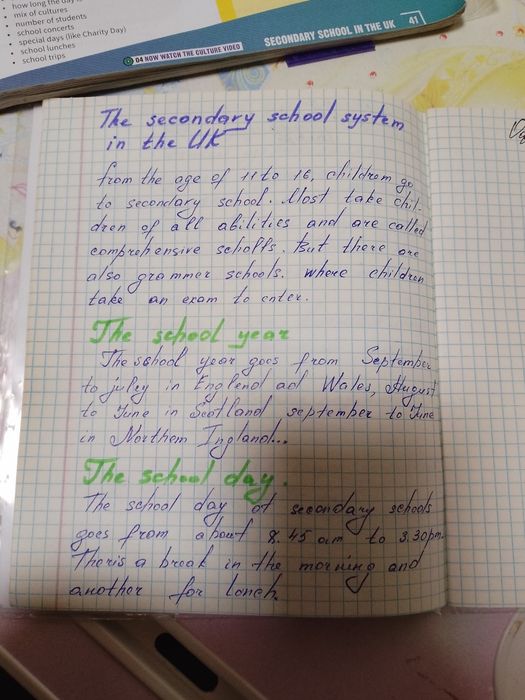 • how long the day is
• mix of cultures
• number of students
• school concerts
• special days (like Charity Day)
• school lunches
• school trips
04 NOW WATCH THE CULTURE VIDEO
SECONDARY SCHOOL IN THE UK 41
The secondary school system
in the UK
from the age of 11 to 16, children go
to secondary school. Most take chil-
dren of all abilities and are called
comprehensive schoffs. But there are
also grammer schools. where children
take an exam to enter.
The school year
The school year goes from September
to juley in Englend ad Wales, August
to June in Scotland september to June
in Northem Ingland...
The school day.
The school day of secondary schools
goes from about 8.45 am to 3.30pm.
Theris a break in the morning and
another for lonch.